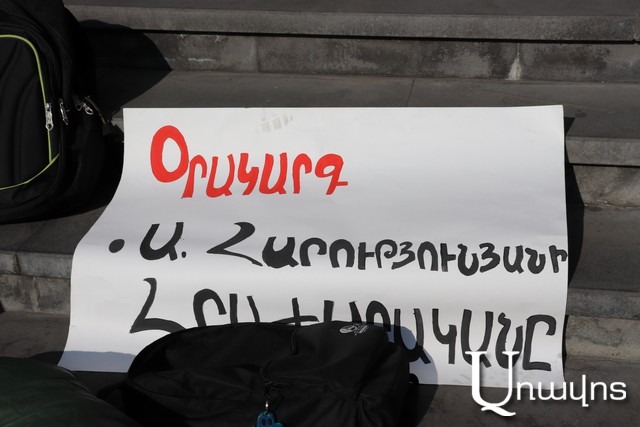 ՕՐԱԿԱՐԳ
• Ա. ՀԱՐՈՒԹՅՈՒՆՅԱՆԻ
ՀՐԱԺԱՐԱԿԱՆԸ
Առավոտ